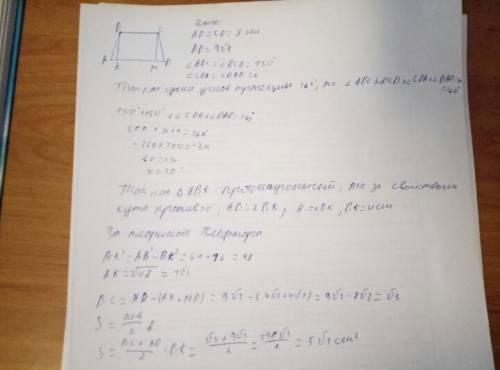 B C
A K M D
Дано:
AB=CD=8 см
AD=9√3
∠ABC=∠BCD=150°
∠CDA=∠DAB=x
Так как сума углов трапеции 360°, то ∠ABC+∠BCD+∠CDA+∠DAB=
=360°
150°+150°+∠CDA+∠DAB=360°
300+x+x=360°
-360+300=-2x
60=2x
x=30°
Так как △ABK прямоугольный, то за
кута 30°, AB=2BK, 8=2BK, BK=4см
За теоремой Пифагора
AK²=AB²-BK²=64-16=48
AK=√48=4√3
BC=AD-(AK+MD)=9√3-(4√3+4√3)=9√3-8√3=√3
S=a+b/2 h
S=BC+AD/2 · BK=√3+9√3/2=10√3/2=5√3 см²